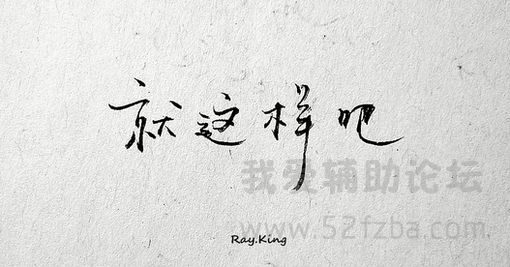 就这样吧
我爱辅助论坛
www.52fzba.com
Ray.King